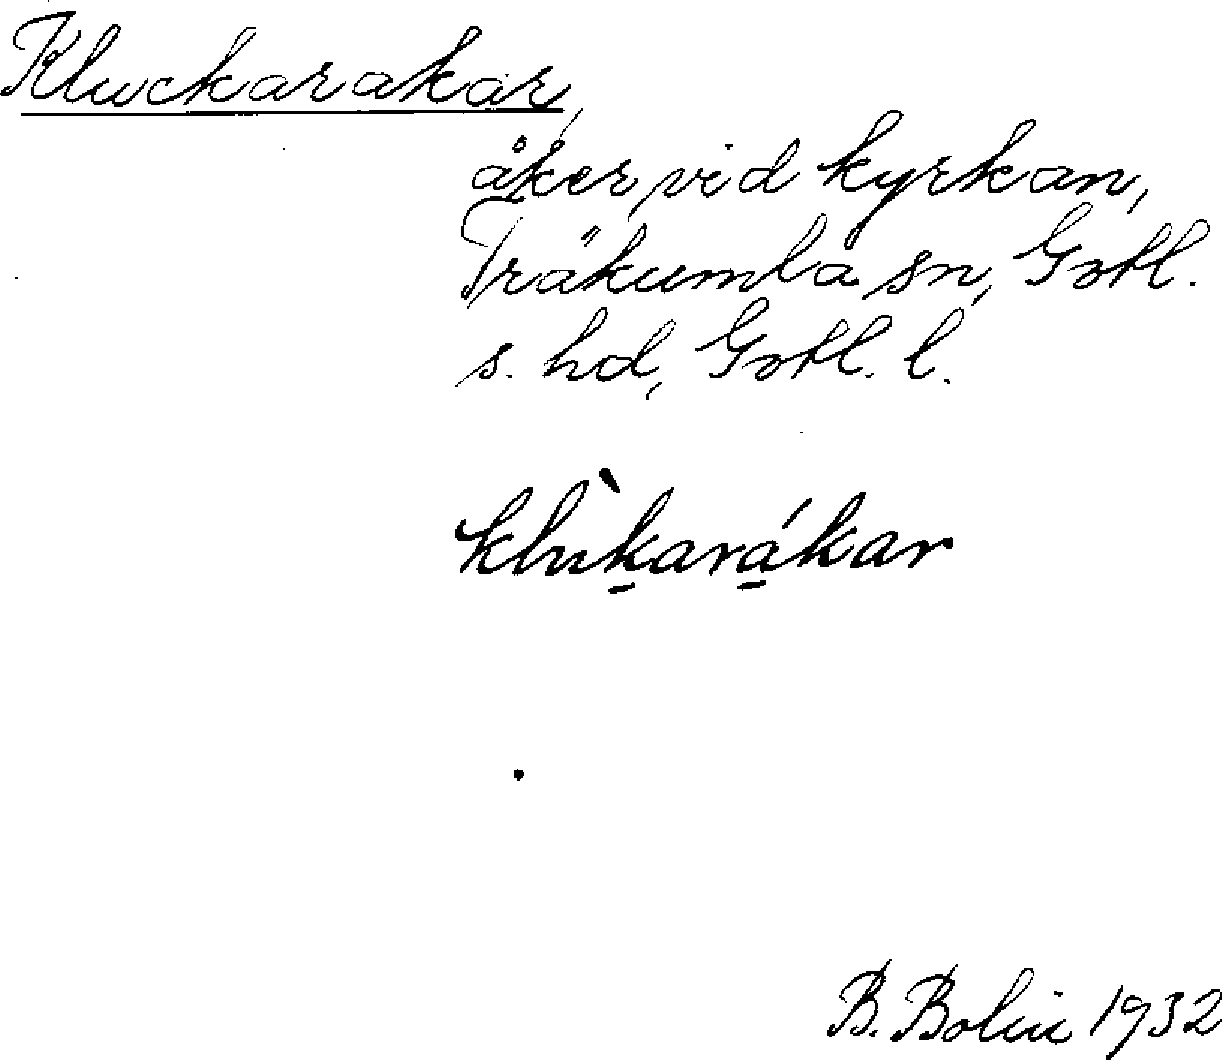 Kluckarakar,
åker, vid kyrkan,
Träkumla sn, Gotl.
s. hd, Gotl. l.
klùk̠ará̠kar
B. Bolin 1932